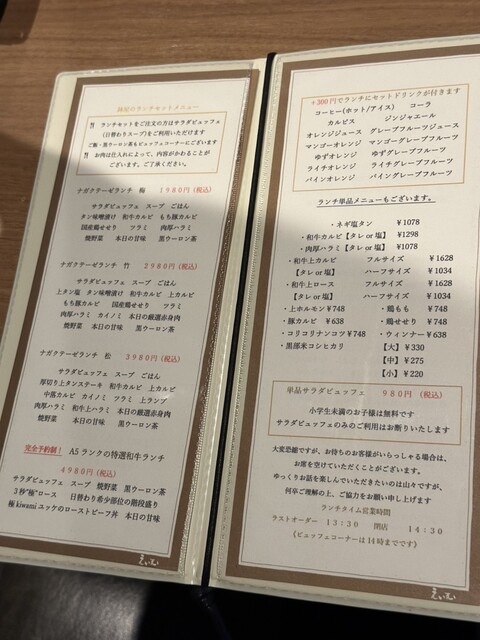 ランチセットメニュー
ランチセットをご注文の方はサラダビュッフェ
(日替わりスープ)をご利用いただけます
ご飯・黒ウーロン茶もビュッフェコーナーにございます
お肉は仕入れによって、内容がかわることが
ございます。ご了承ください。
ナガクテーゼランチ 梅 1980円(税込)
サラダビュッフェ スープ ごはん
タン味噌漬け 和牛カルビ もち豚カルビ
国産鶏せせり フラミ 肉厚ハラミ
焼野菜 本日の甘味 黒ウーロン茶
ナガクテーゼランチ 竹 2980円(税込)
サラダビュッフェ スープ ごはん
上タン塩 タン味噌漬け 和牛カルビ 上カルビ
もち豚カルビ 国産鶏せせり フラミ
肉厚ハラミ カイノミ 本日の厳選赤身肉
焼野菜 本日の甘味 黒ウーロン茶
ナガクテーゼランチ 松 3980円(税込)
サラダビュッフェ スープ ごはん
厚切り上タンステーキ 和牛カルビ 上カルビ
中落カルビ カイノミ フラミ 上ランプ
肉厚ハラミ 和牛上ハラミ 本日の厳選赤身肉
焼野菜 本日の甘味 黒ウーロン茶
完全予約制! A5ランクの特選和牛ランチ
4980円(税込)
サラダビュッフェ スープ 焼野菜 黒ウーロン茶
3秒"極"ロース 日替わり希少部位の階段盛り
極kiwamiユッケのローストビーフ丼 本日の甘味
+300円でランチにセットドリンクが付きます
コーヒー(ホット/アイス) コーラ
カルピス ジンジャエール
オレンジジュース グレープフルーツジュース
マンゴーオレンジ マンゴーグレープフルーツ
ゆずオレンジ ゆずグレープフルーツ
ライチオレンジ ライチグレープフルーツ
パインオレンジ パイングレープフルーツ
ランチ単品メニューもございます。
・ネギ塩タン ¥1078
・和牛カルビ【タレor塩】 ¥1298
・肉厚ハラミ【タレor塩】 ¥1078
・和牛上カルビ フルサイズ ¥1628
【タレor塩】 ハーフサイズ ¥1034
・和牛上ロース フルサイズ ¥1628
【タレor塩】 ハーフサイズ ¥1034
・上ホルモン¥748 ・鶏もも ¥748
・豚カルビ ¥638 ・鶏せせり ¥748
・コリコリナンコツ¥748 ・ウィンナー¥638
・黒部米コシヒカリ 【大】¥330
【中】¥275
【小】¥220
単品サラダビュッフェ 980円 (税込)
小学生未満のお子様は無料です
サラダビュッフェのみのご利用はお断りいたします
大変恐縮ですが、お待ちのお客様がいらっしゃる場合は、
お席を空けていただくことがございます。
ゆっくりお話を楽しんでいただきたいのは山々ですが、
何卒ご理解の上、ご協力をお願い申し上げます
ランチタイム営業時間
ラストオーダー 13:30 閉店 14:30
《ビュッフェコーナーは14時までです》